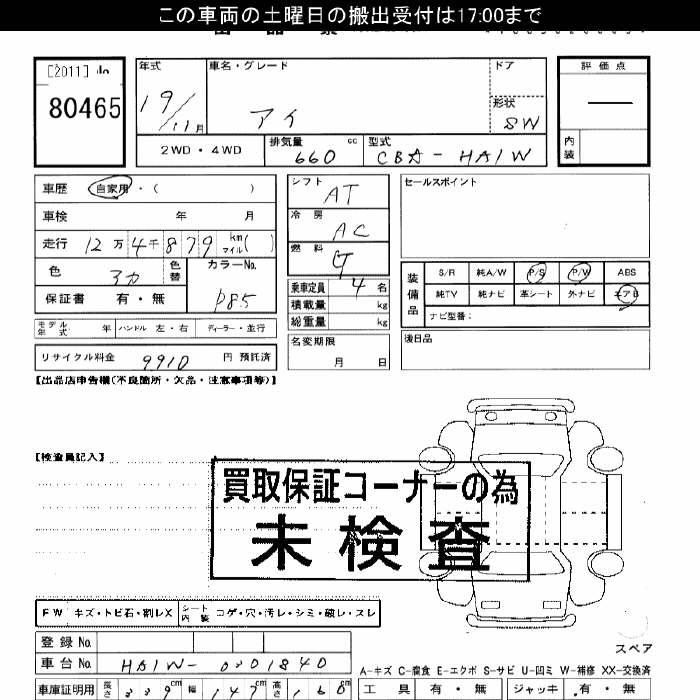 この車両の土曜日の搬出受付は17:00まで
[2011]
80465
年式
19/11月
車名・グレード
アイ
ドア
形状
SW
2WD・4WD
排気量
660
cc
型式
CBA-HA1W
評価点
内装
車歴 自家用・( )
車検 年 月
走行 12万4千879 km マイル( )
色
アカ
色替
カラーNo.
P85
保証書 有・無
シフト
AT
冷房
AC
燃料
G
乗車定員 4名
積載量 kg
総重量 kg
セールスポイント
装備品
S/R 純A/W P/S P/W ABS
純TV 純ナビ 革シート 外ナビ エアB
ナビ型番:
モデル年式 年 ハンドル 左・右 ディーラー・並行
リサイクル料金 9910 円 預託済
名変期限
月 日
後日品
【出品店申告欄(不良箇所・欠品・注意事項等)】
【検査員記入】
買取保証コーナーの為
未検査
FW キズ・トビ石・割レX
シート内装 コゲ・穴・汚レ・シミ・破レ・スレ
登録No.
車台No. HA1W-0301840
スペア
A-キズ C-腐食 E-エクボ S-サビ U-凹ミ W-補修 XX-交換済
車庫証明用 長さ 339cm 幅 147cm 高さ 160cm
工具 有・無 ジャッキ 有・無